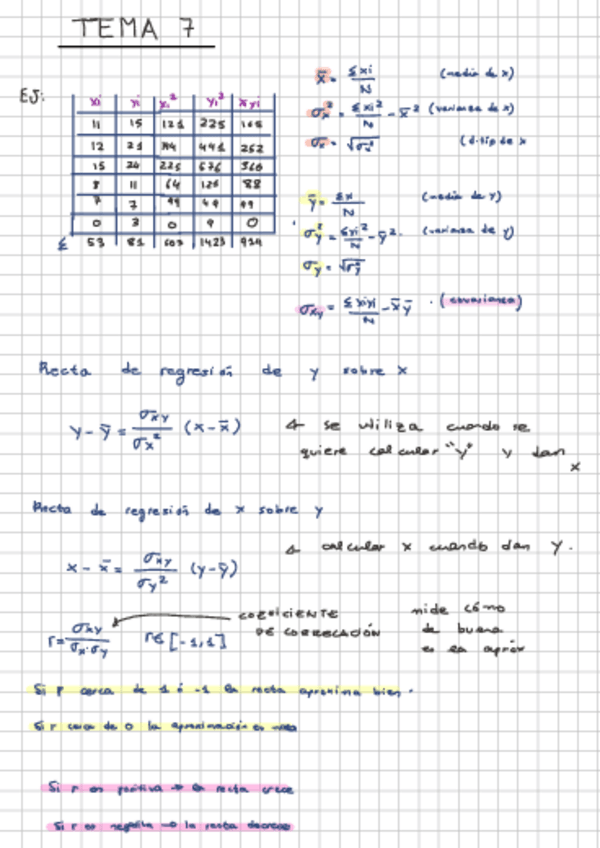 TEMA 7
EJ:
xi yi xi² yi² xi yi
11 15 121 225 165
12 21 144 441 252
15 24 225 576 360
8 11 64 121 88
7 7 49 49 49
0 3 0 9 0
Σ 53 81 603 1423 914
x̄ = Σxi/N (media de x)
σx² = Σxi²/N - x̄² (varianza de x)
σx = √σx² (d.típ de x
ȳ = Σx/N (media de y)
σy² = Σxi²/N - ȳ². (varianza de y)
σy = √σy²
σxy = Σxiyi/N - x̄ȳ · (covarianza)
Recta de regresión de y sobre x
y - ȳ = σxy/σx² (x - x̄)
se utiliza cuando se
quiere calcular "y" y dan
x
Recta de regresión de x sobre y
x - x̄ = σxy/σy² (y - ȳ)
calcular x cuando dan y.
r = σxy/σx·σy
r∈[-1,1]
COEFICIENTE
DE CORRELACIÓN
mide cómo
de buena
es la aprox
Si r cerca de 1 ó -1 la recta aproxima bien.
Si r cerca de 0 la aproximación es mala
Si r es positiva → la recta crece
Si r es negativa → la recta decrece